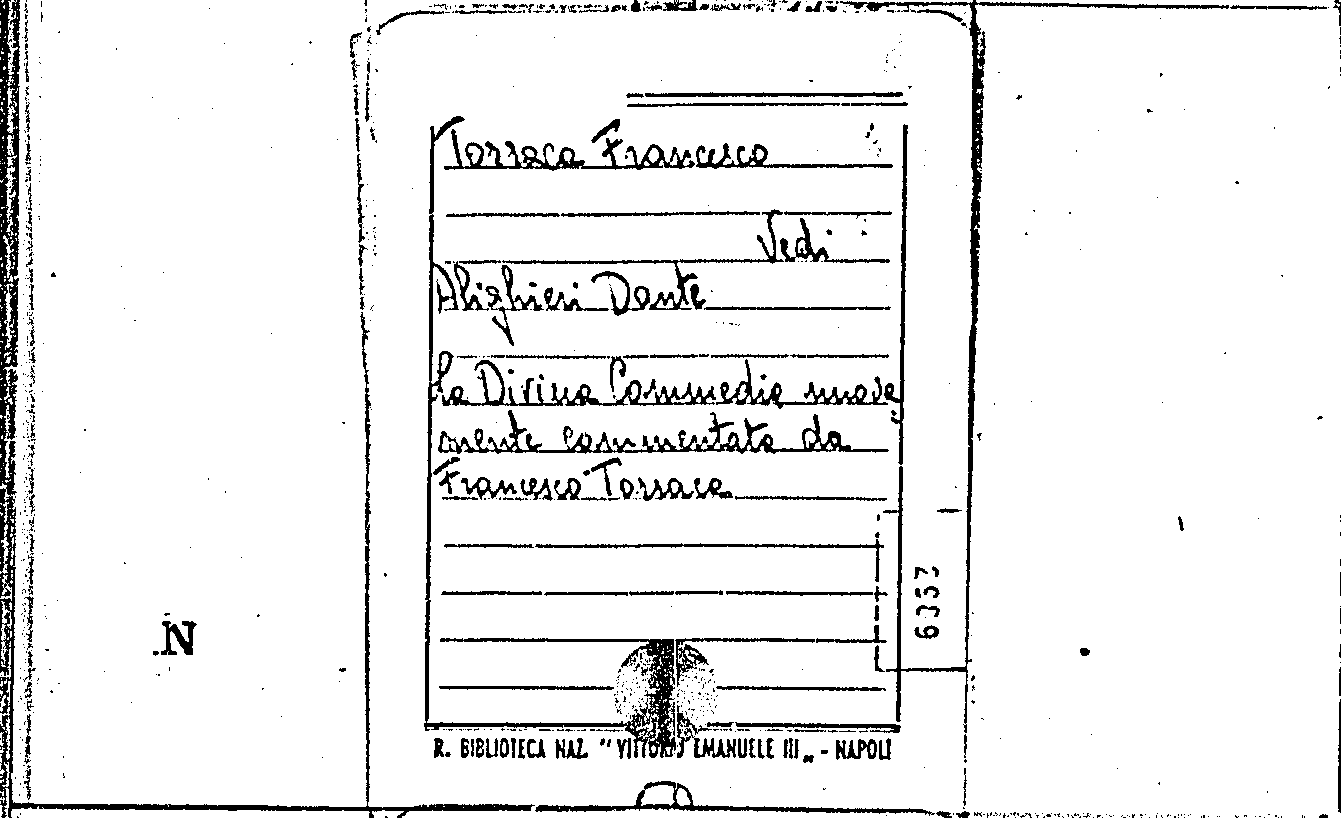 Torraca Francesco
Vedi
Alighieri Dante
La Divina Commedia nuova
mente commentata da
Francesco Torraca
6357
N
R. BIBLIOTECA NAZ. "VITTORIO EMANUELE III„ - NAPOLI